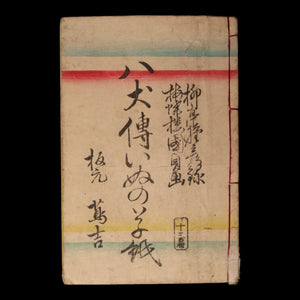 柳亭種彦録
梅蝶楼國貞画
八犬傳いぬのさうし
十三編
板元
蔦吉